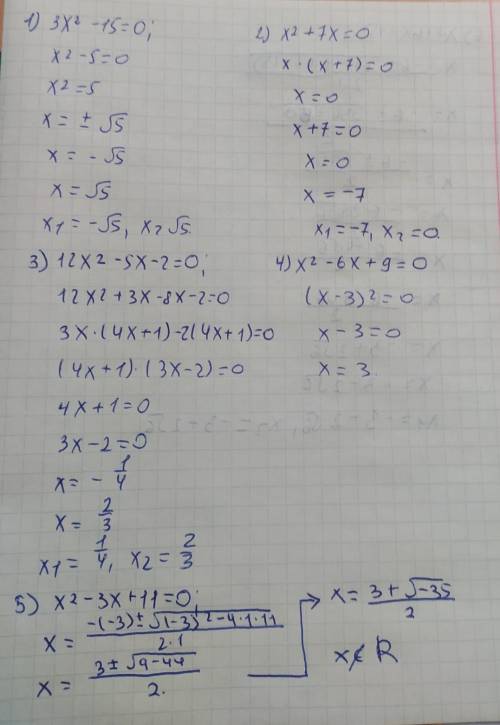 1) 3x² -15=0;
x²-5=0
x²=5
x= ± √5
x= - √5
x= √5
x₁= -√5, x₂ √5.
2) x²+7x=0
x·(x+7)=0
x=0
x+7=0
x=0
x= -7
x₁=-7, x₂=0.
3) 12x² -5x-2=0;
12x²+3x-8x-2=0
3x·(4x+1)-2(4x+1)=0
(4x+1)·(3x-2)=0
4x+1=0
3x-2=0
x= - 1/4
x= 2/3
x₁= 1/4, x₂= 2/3
4) x² -6x+9=0
(x-3)²=0
x-3=0
x=3.
5) x²-3x+11=0;
x= -(-3)±√(-3)²-4·1·11 / 2·1
x= 3±√9-44 / 2.
x= 3+√-35 / 2
x∉R